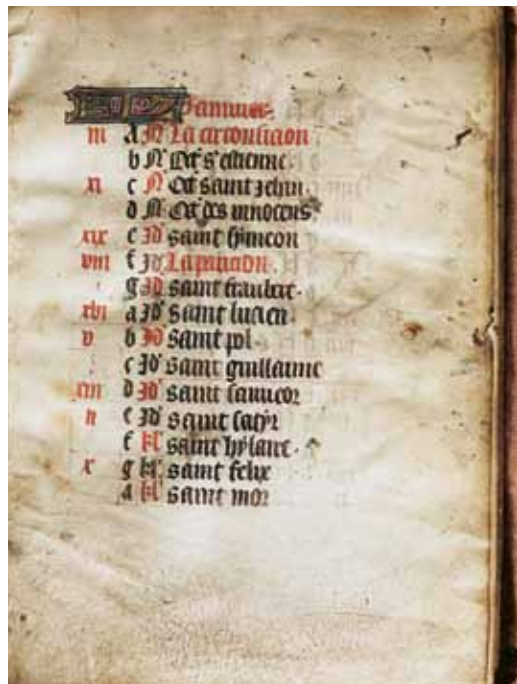 Januier
iii a N La circonsicion
b N Oct s estienne
xi c N Oct saint Jehan
d N Oct des innocens
xix e Id saint symeon
viii f Id
g Id saint fraubert
xvi a Id saint lucien
v b Id saint pol
c Id saint guillaume
xiii d Id saint sauueor
ii e Id saint satyr
f kl saint hylaire
x g kl saint felix
a kl saint mor